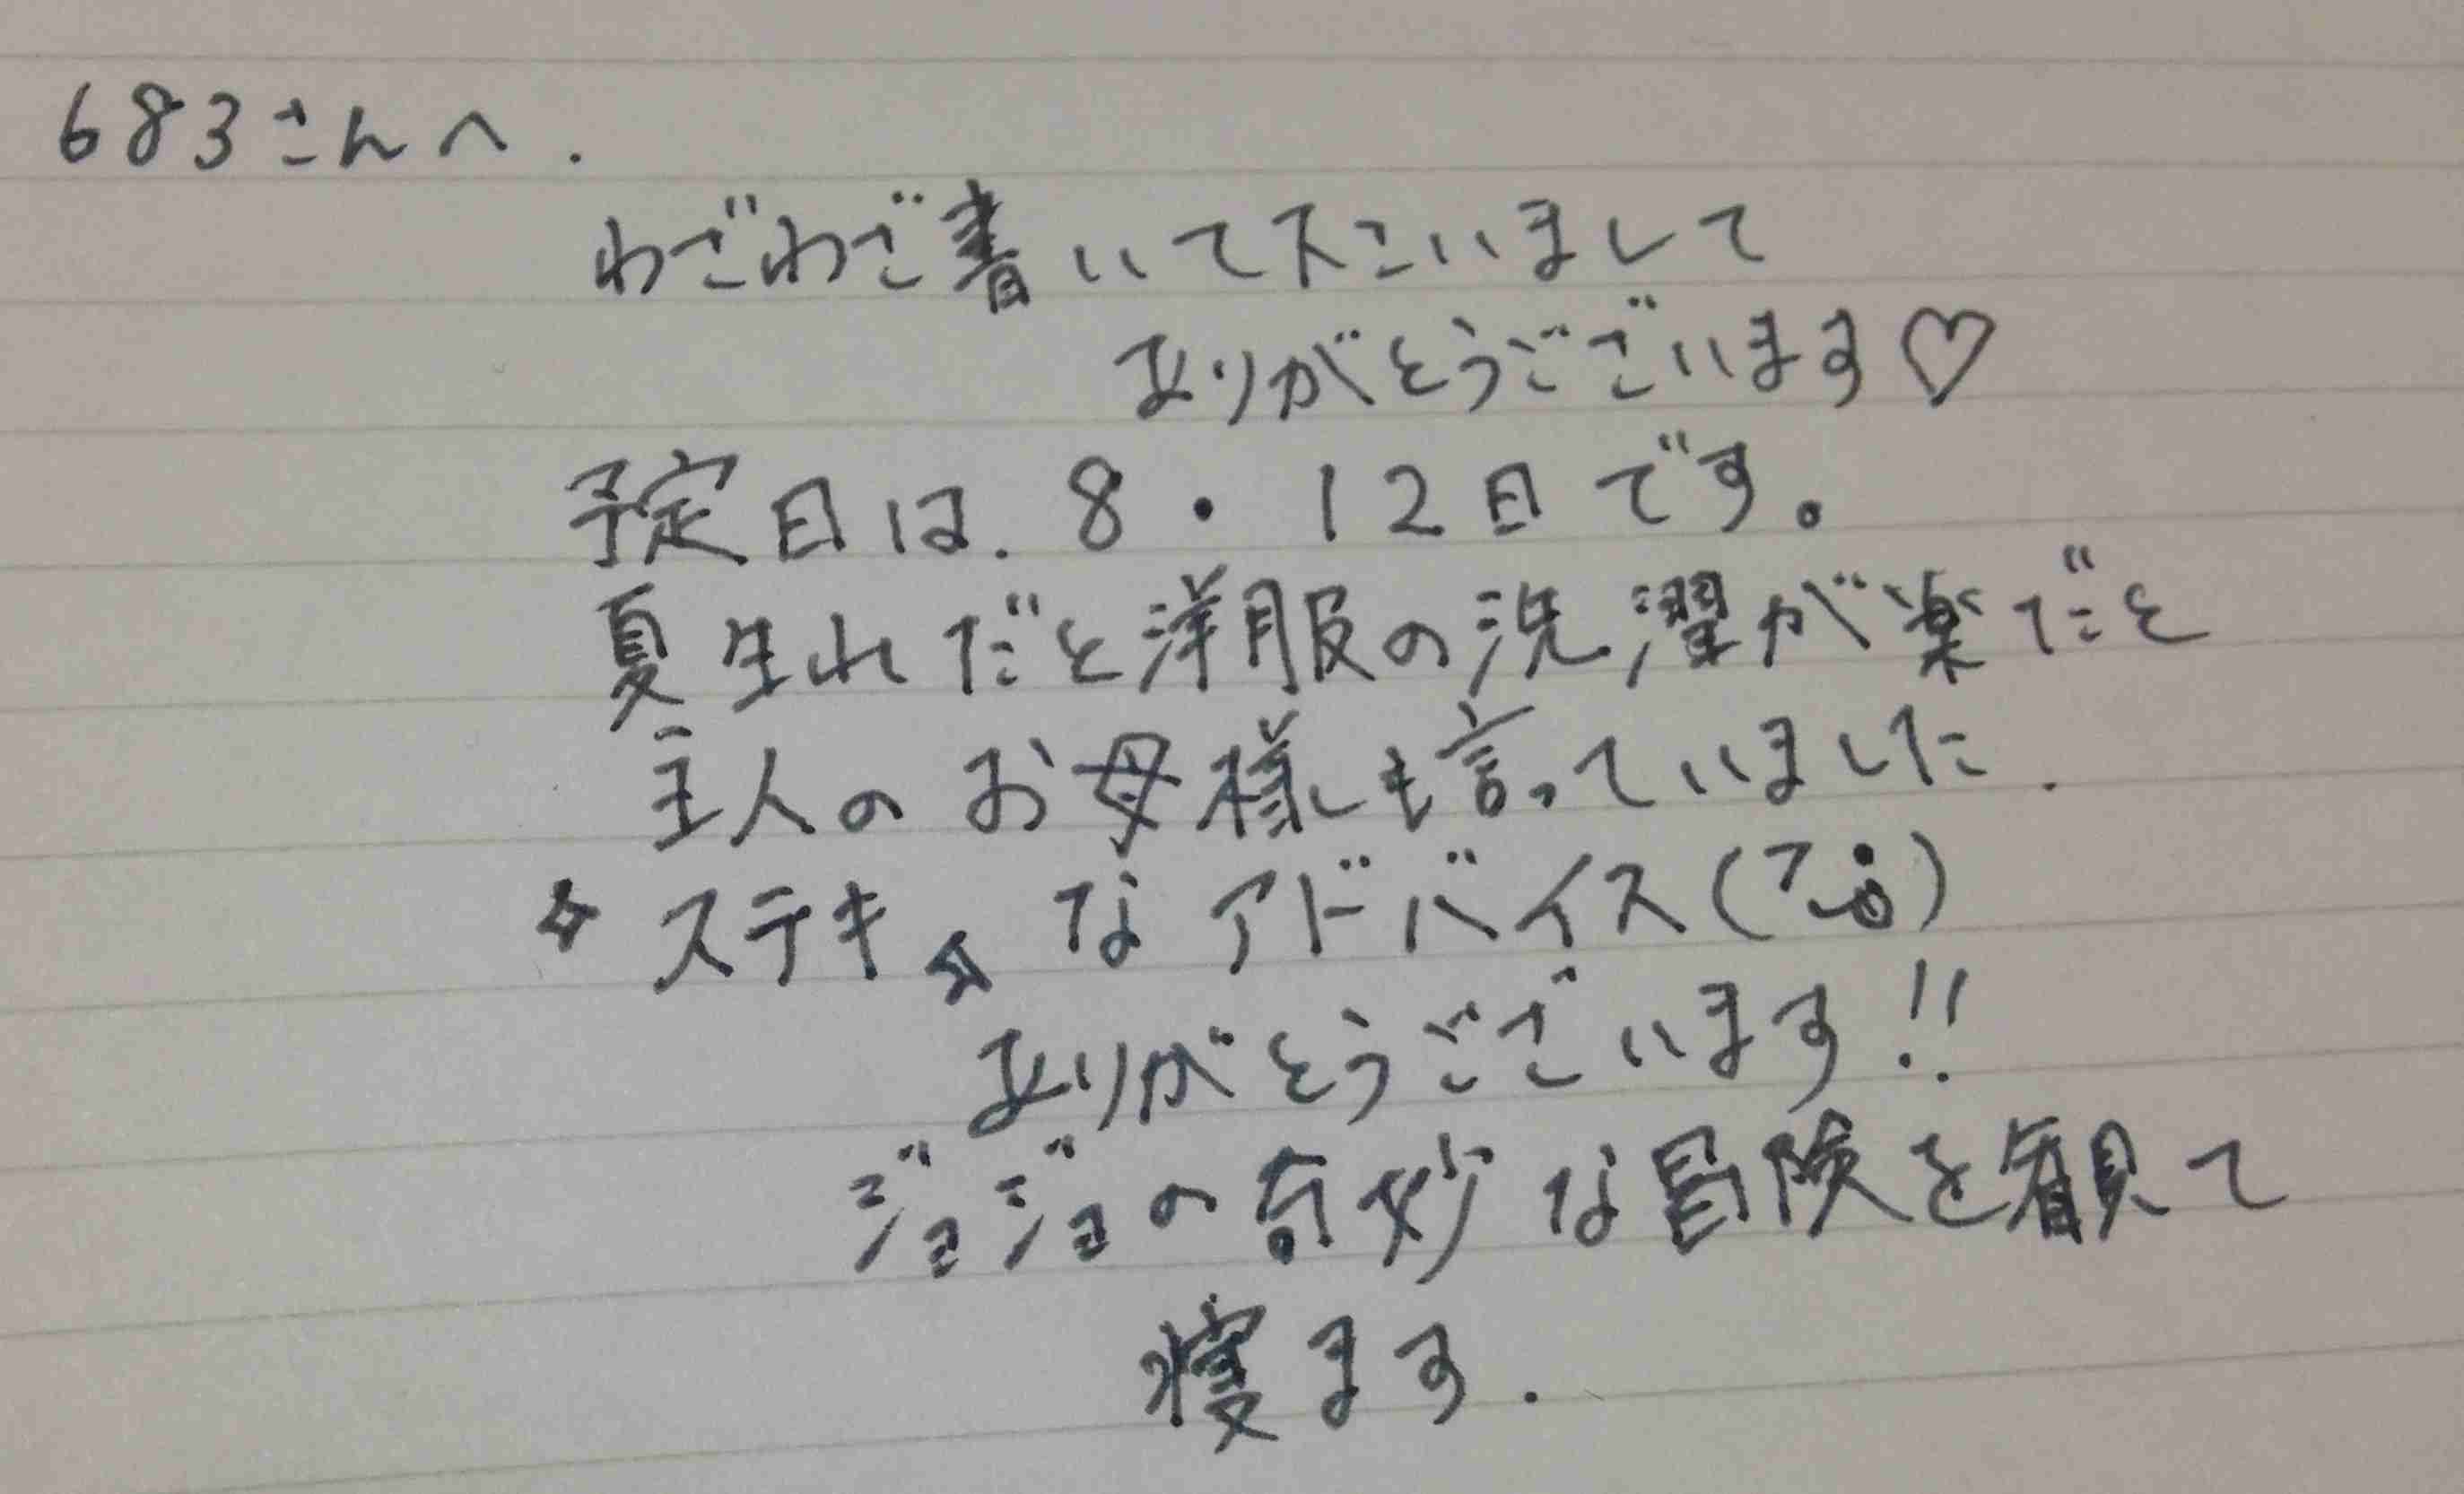 683さんへ.
わざわざ書いて下さいまして
ありがとうございます♡
予定日は.8・12日です。
夏生れだと洋服の洗濯が楽だと
主人のお母様も言っていました.
☆ステキ☆なアドバイス( )
ありがとうございます!!
ジョジョの奇妙な冒険を観て
寝ます.